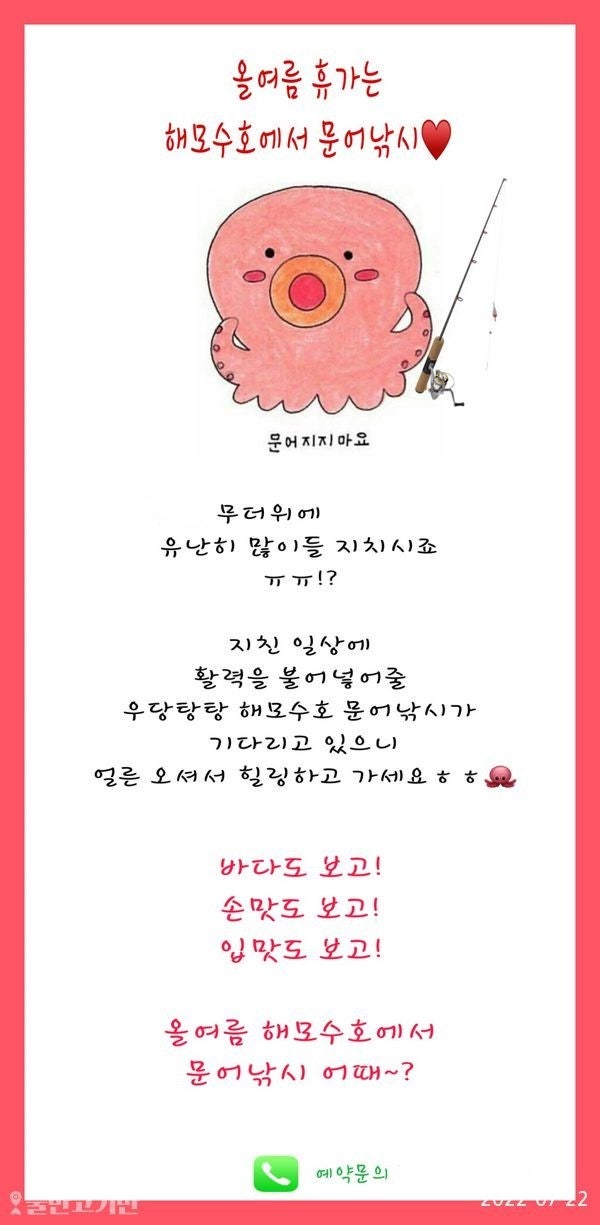 올여름 휴가는
해모수호에서 문어낚시♥
문어지지마요
무더위에
유난히 많이들 지치시죠
ㅠㅠ!?
지친 일상에
활력을 불어넣어줄
우당탕탕 해모수호 문어낚시가
기다리고 있으니
얼른 오셔서 힐링하고 가세요ㅎㅎ🐙
바다도 보고!
손맛도 보고!
입맛도 보고!
올여름 해모수호에서
문어낚시 어때~?
예약문의
물반고기반
2022-07-22